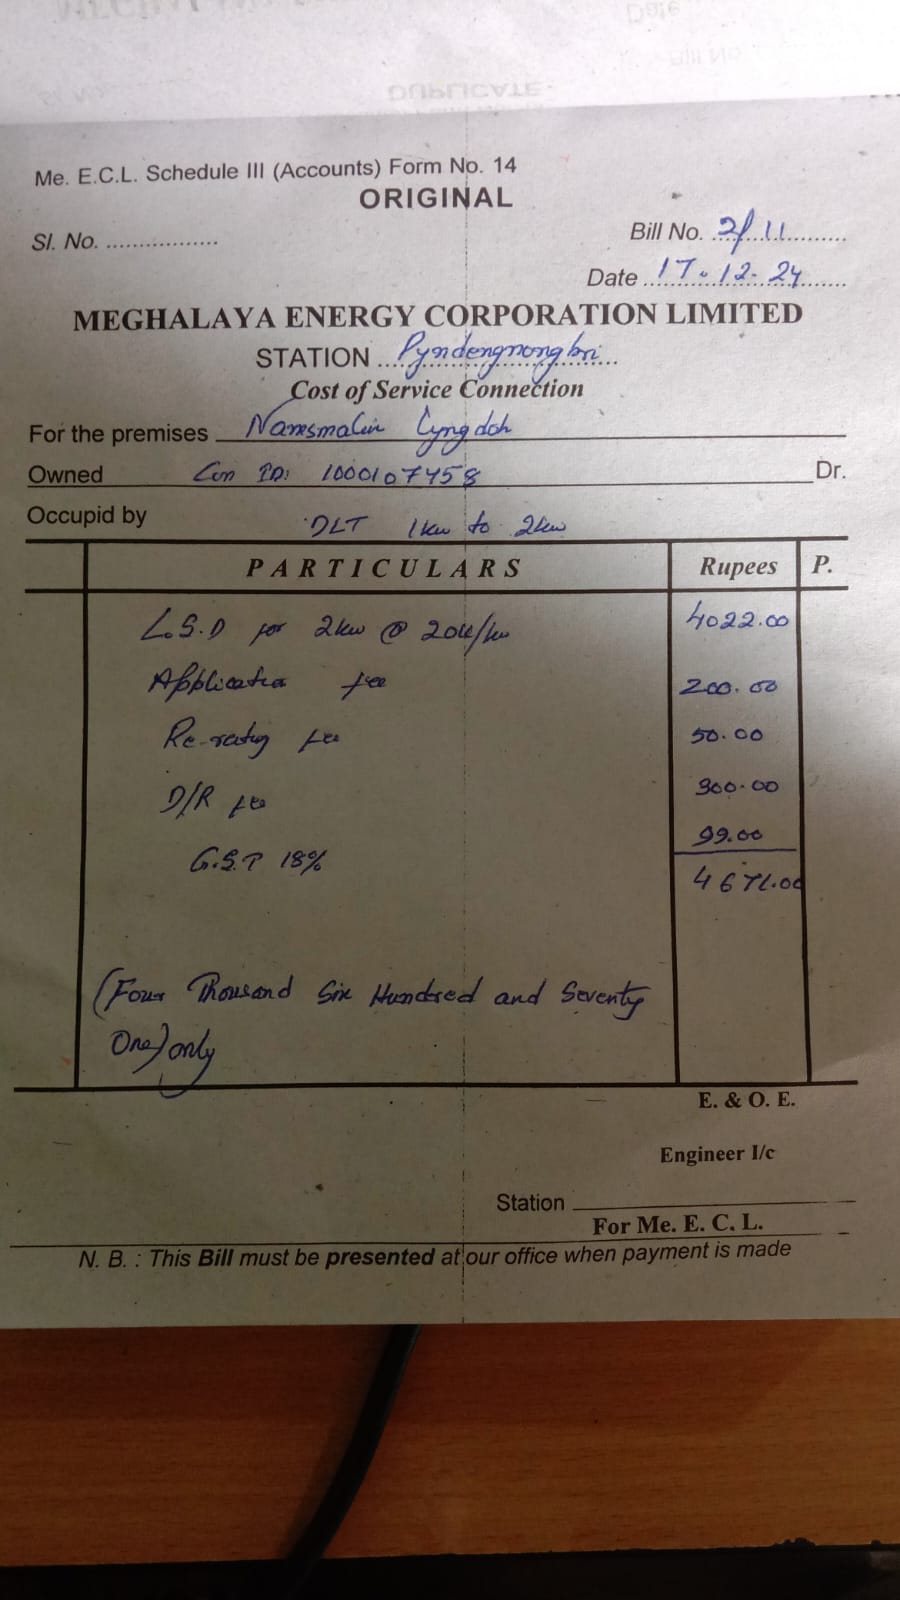 DUPLICATE
Date
Bill No.
Me. E.C.L. Schedule III (Accounts) Form No. 14
ORIGINAL
Sl. No. .................
Bill No. 2/11
Date 17.12.24
MEGHALAYA ENERGY CORPORATION LIMITED
STATION Pyndengnongbri
Cost of Service Connection
For the premises Lyngdoh
Owned Con ID: 1000107458 Dr.
Occupid by DLT 1kw to 2kw
PARTICULARS Rupees P.
L.S.D for 2kw @ 2011/kw 4022.00
Application fee 200.00
Re-rating fee 50.00
D/R fee 300.00
G.S.T 18% 99.00
4671.00
(Four Thousand Six Hundred and Seventy
One) only
E. & O. E.
Engineer I/c
Station
For Me. E. C. L.
N. B. : This Bill must be presented at our office when payment is made